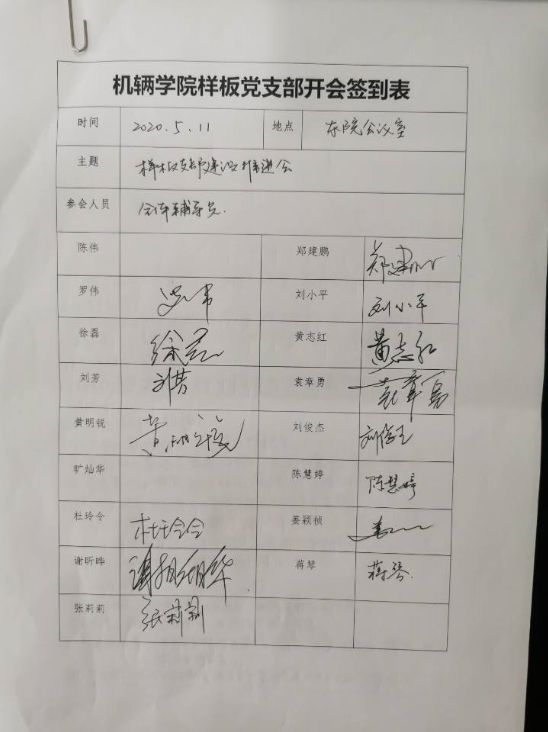 机辆学院样板党支部开会签到表
时间 2020.5.11 地点 东院会议室
主题 样板支部建设推进会
参会人员 全体辅导员.
陈伟 郑建鹏 郑建鹏
罗伟 罗伟 刘小平 刘小平
徐磊 徐磊 黄志红 黄志红
刘芳 刘芳 袁章勇 袁章勇
黄明锐 黄明锐 刘俊杰 刘俊杰
旷灿华 陈慧婷 陈慧婷
杜玲令 杜令令 姜颖桢
谢昕晔 蒋琴 蒋琴
张莉莉 张莉莉